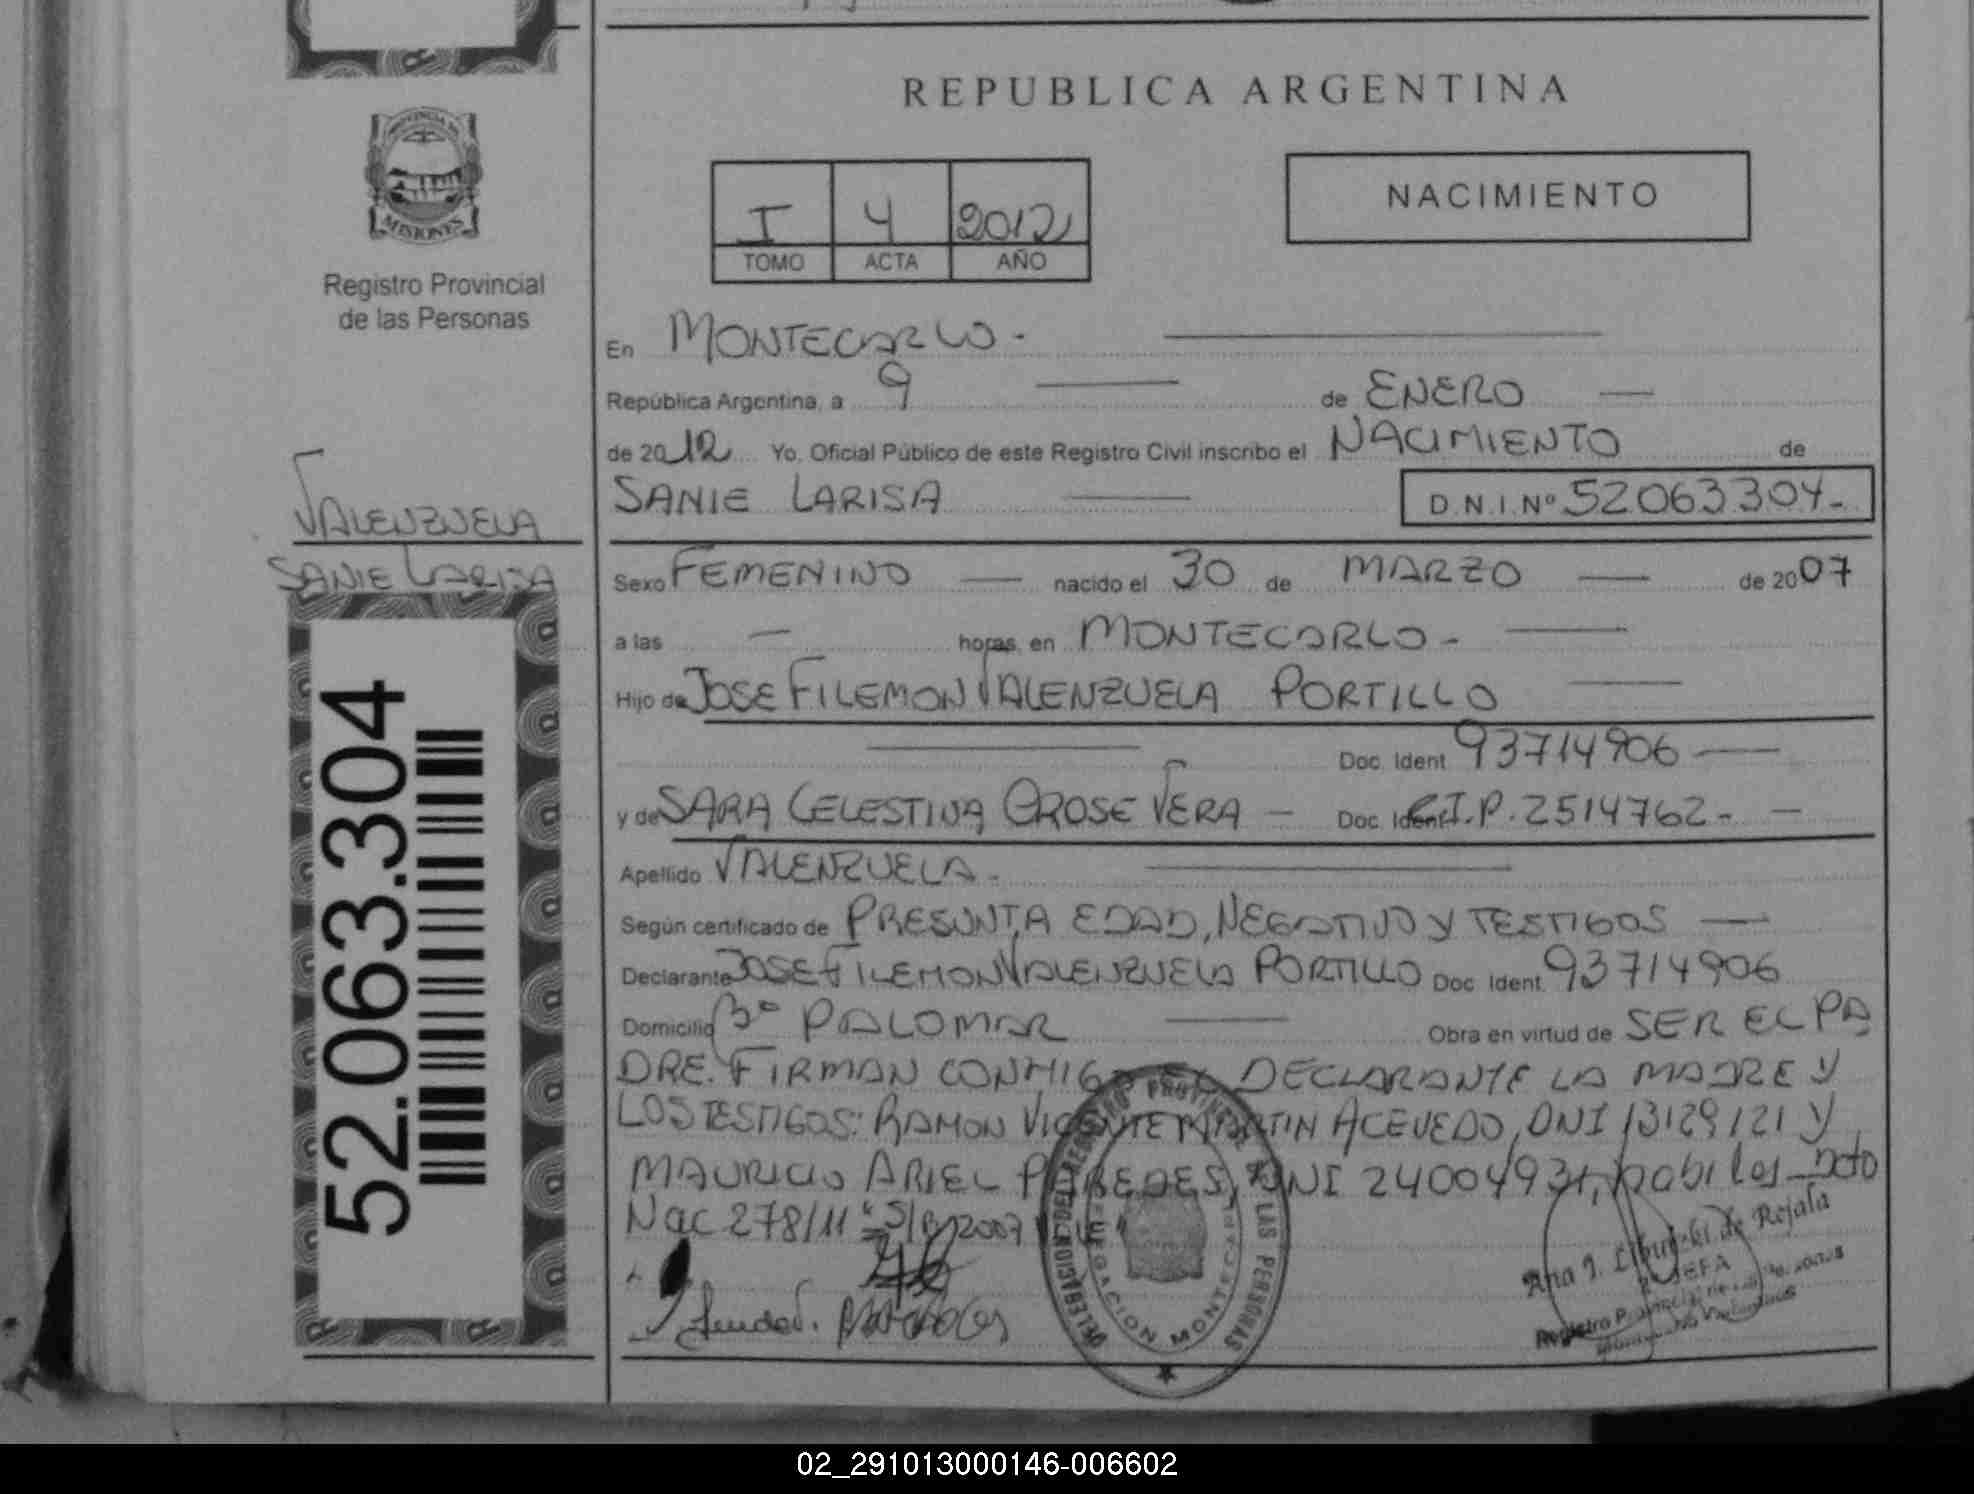 REPUBLICA ARGENTINA
PROVINCIA DE
MISIONES
Registro Provincial
de las Personas
I 4 2012
TOMO ACTA AÑO
NACIMIENTO
En MONTECARLO -
República Argentina, a 9 de ENERO
de 2012 Yo, Oficial Público de este Registro Civil inscribo el NACIMIENTO de
SANIE LARISA
D.N.I.Nº 52063304-
VALENZUELA
SANIE LARISA
52.063.304
Sexo FEMENINO nacido el 30 de MARZO de 2007
a las — horas, en MONTECARLO -
Hijo de JOSE FILEMON VALENZUELA PORTILLO
Doc. Ident 93714906
y de SARA CELESTINA OROSE VERA - Doc. Ident C.I.P. 2514762 -
Apellido VALENZUELA -
Según certificado de PRESUNTA EDAD, NEGATIVO Y TESTIGOS
Declarante JOSE FILEMON VALENZUELA PORTILLO Doc. Ident. 93714906
Domicilio Bº PALOMAR Obra en virtud de SER EL PA
DRE. FIRMAN CONMIGO EL DECLARANTE LA MADRE Y
LOS TESTIGOS: RAMON VICENTE MARTIN ACEVEDO, DNI 13129121 Y
MAURICIO ARIEL PAREDES, DNI 24004931,
Nac 278/11
REGISTRO PROVINCIAL DE LAS PERSONAS
DELEGACION MONTECARLO
Ana I. de Rejala
JEFA
Registro Provincial de las Personas
02_291013000146-006602